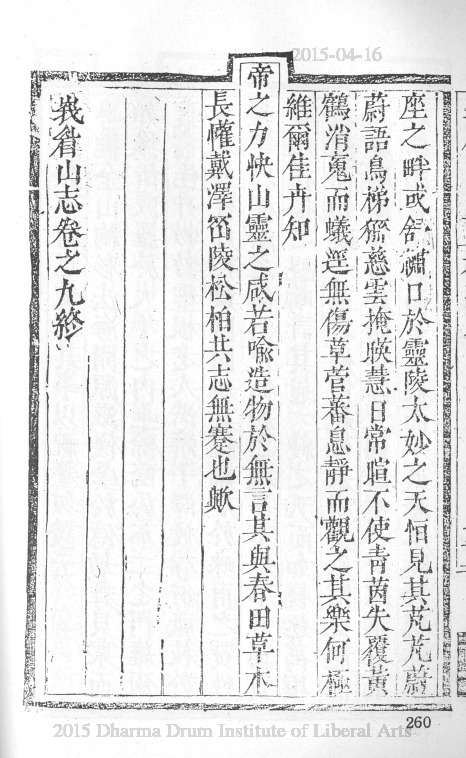 2015-04-16
座之畔或舍繡口於靈陵太妙之天恒見其芃芃蔚
蔚語鳥梯猱慈雲掩暎慧日常暄不使青茵失覆黃
鶴消冤而蟻逕無傷草菅蕃息靜而觀之其樂何極
維爾佳卉知
帝之力怏山靈之咸若喩造物於無言其與春田草木
長懽戴澤笛陵松栢共志無蹇也歟
峩眉山志卷之九終
260
2015 Dharma Drum Institute of Liberal Arts